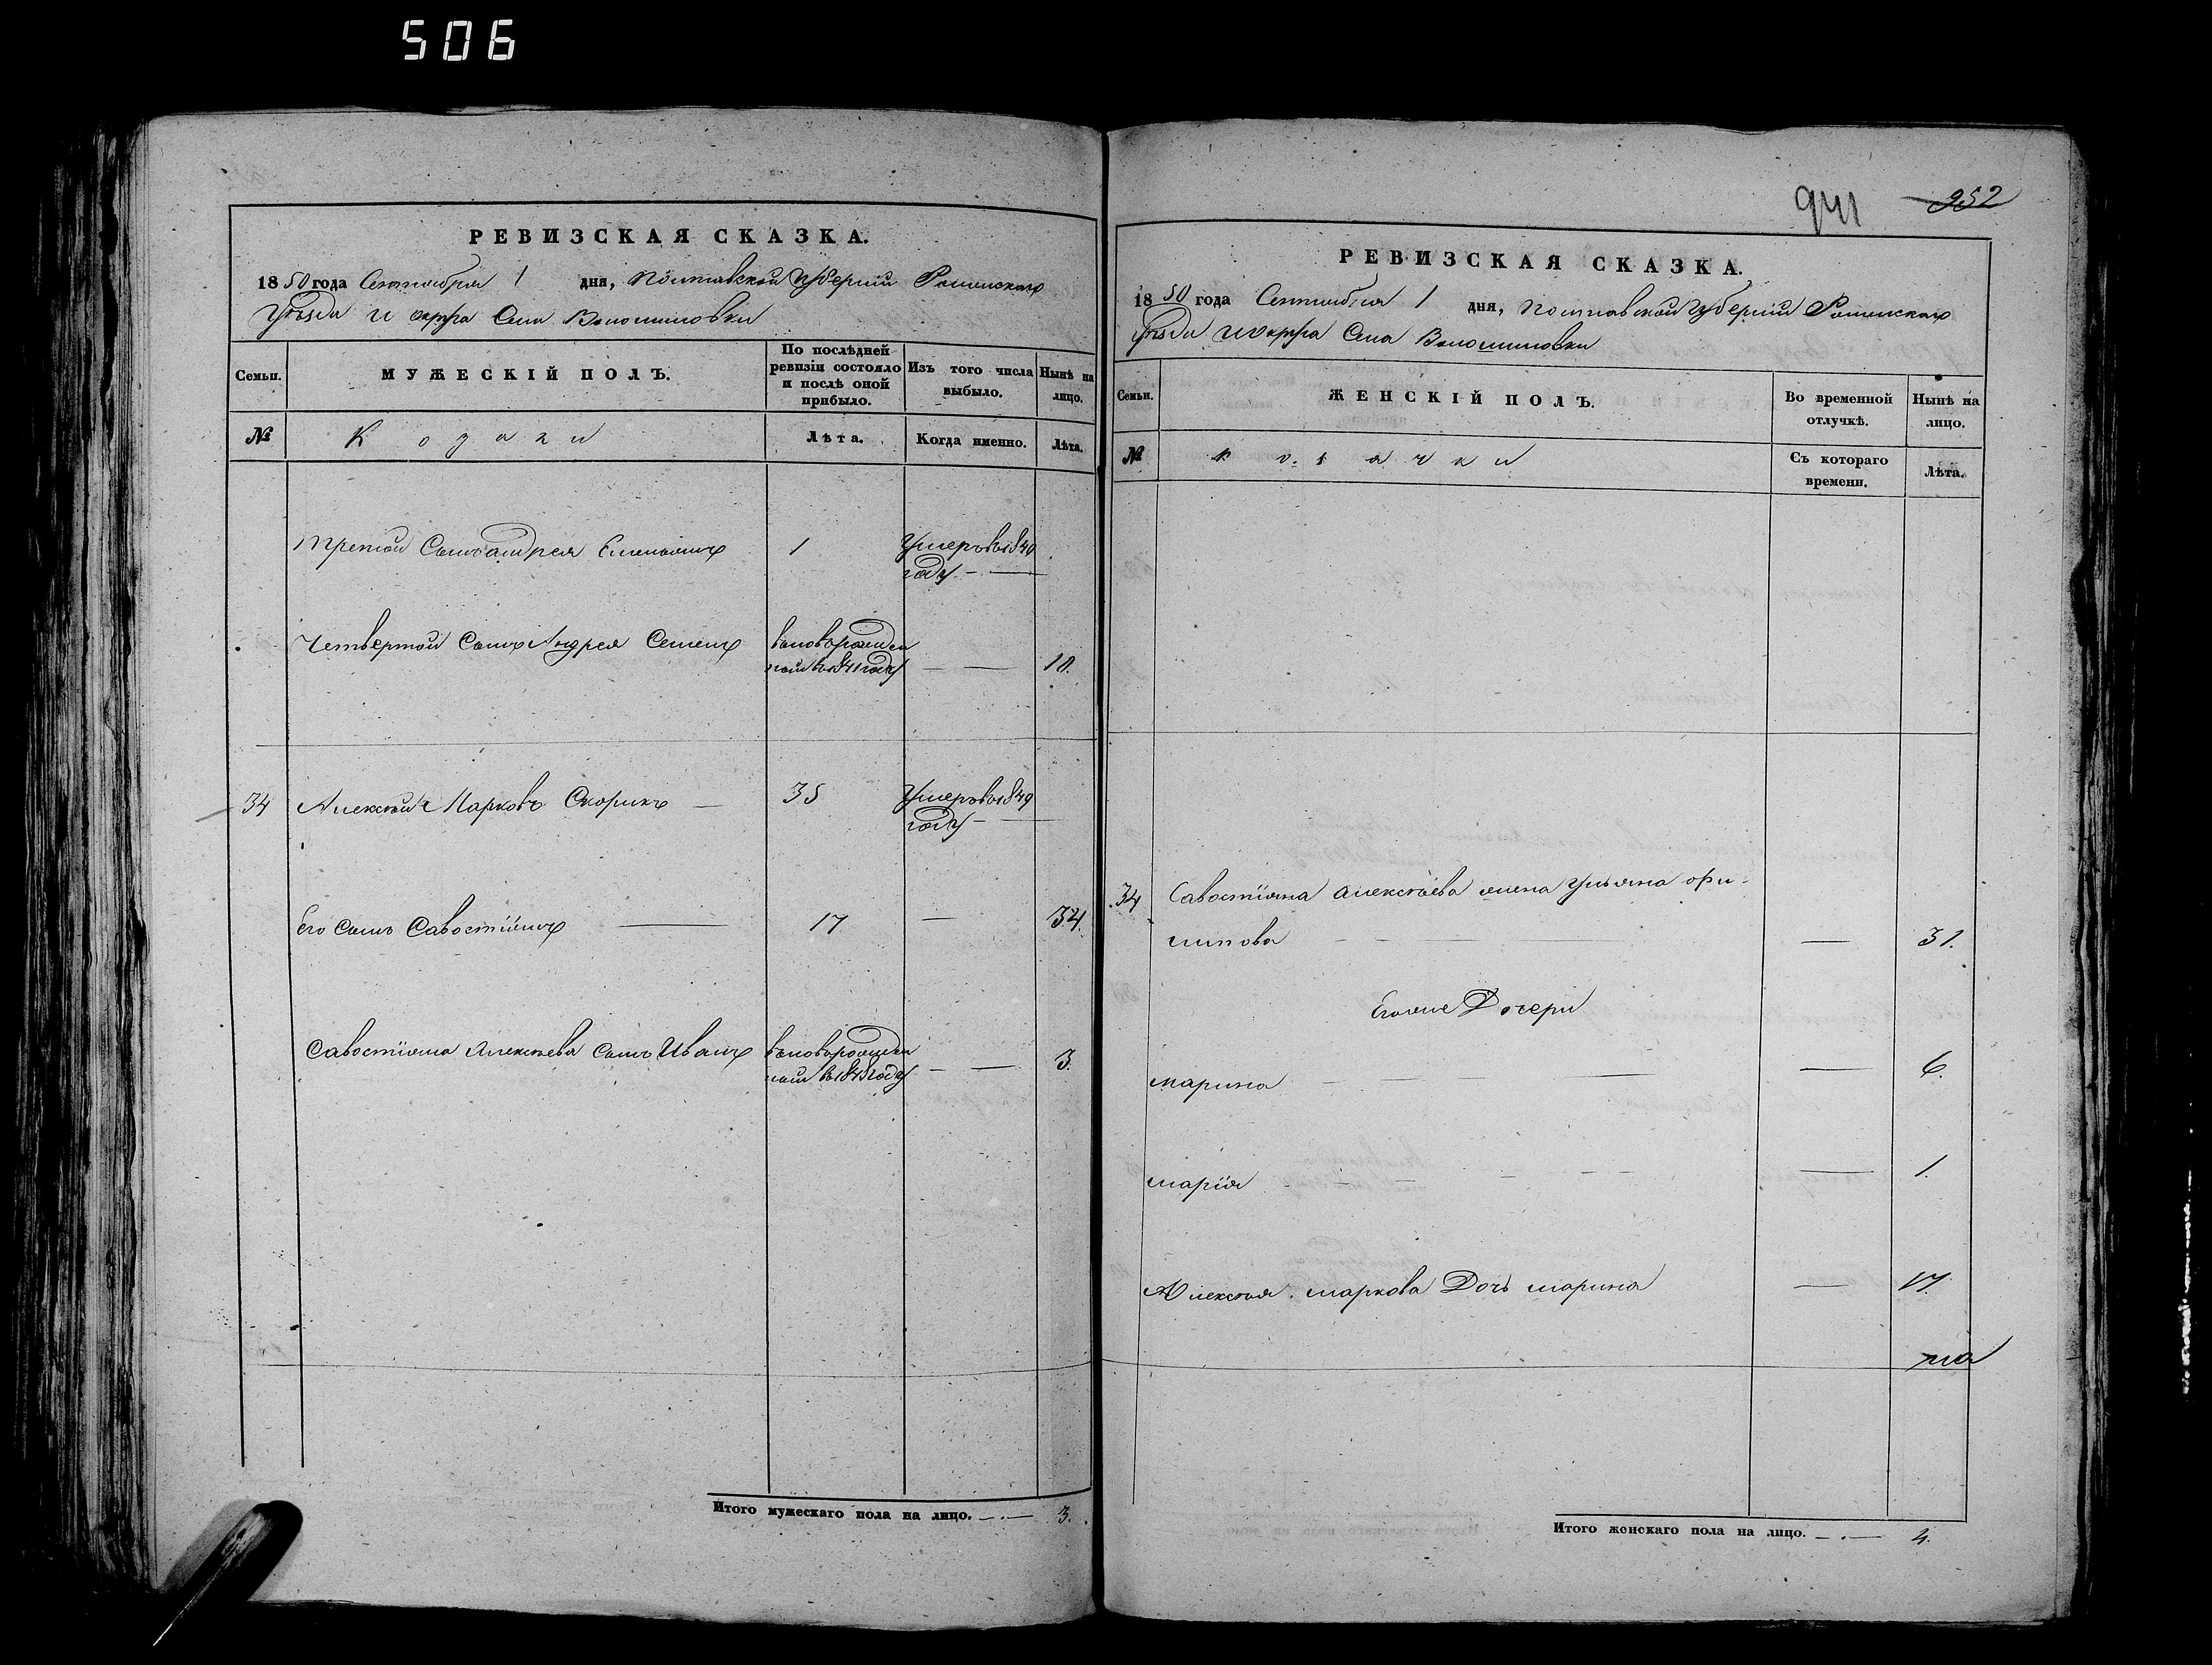 506
РЕВИЗСКАЯ СКАЗКА.
1850 года Сентября 1 дня, Полтавской Губерніи Роменскаго
Уѣзда и округа Села Волошиновки
Семьи.
МУЖЕСКІЙ ПОЛЪ.
По послѣдней ревизіи состояло и послѣ оной прибыло.
Изъ того числа выбыло.
Нынѣ на лицо.
№
Козаки
Лѣта.
Когда именно.
Лѣта.
третій Сынъ Андрея Емельянъ 1 Умеръ въ 1840
году
Четвертой Сынъ Андрея Семенъ вновьрожден 
ной въ 1841 году 10.
34 Алексѣй Марковъ Скорикъ 35 Умеръ въ 1849
году
Его Сынъ Савостіянъ 17 34.
Савостіяна Алексѣева сынъ Иванъ вновьрожден
ной въ 1848 году 3.
Итого мужескаго пола на лицо. 3.
941 952
РЕВИЗСКАЯ СКАЗКА.
1850 года Сентября 1 дня, Полтавской Губерніи Роменскаго
Уѣзда и Округа Села Волошиновки
Семьи.
ЖЕНСКІЙ ПОЛЪ.
Во временной отлучкѣ.
Нынѣ на лицо.
№
Козачки
Съ котораго времени.
Лѣта.
34 Савостіяна Алексѣева жена Ульяна
31.
Егоже Дочери
марина 6.
марія 1.
Алексѣя маркова Дочь марина 17.
Итого женскаго пола на лицо. 4.